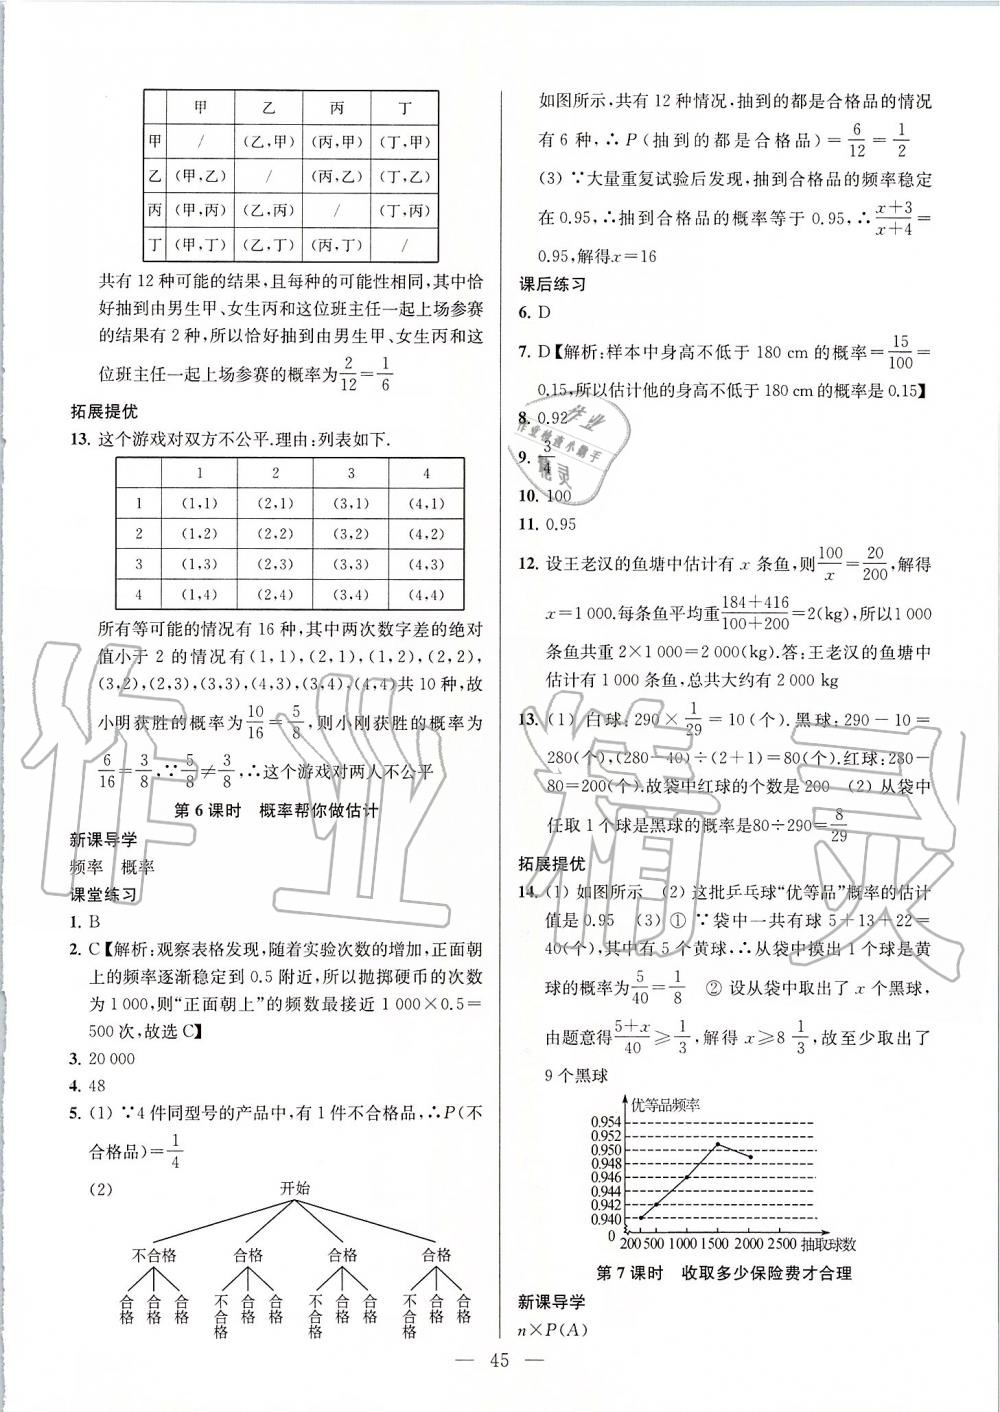 甲 乙 丙 丁
甲 / (乙,甲) (丙,甲) (丁,甲)
乙 (甲,乙) / (丙,乙) (丁,乙)
丙 (甲,丙) (乙,丙) / (丁,丙)
丁 (甲,丁) (乙,丁) (丙,丁) /
共有 12 种可能的结果,且每种的可能性相同,其中恰
好抽到由男生甲、女生丙和这位班主任一起上场参赛
的结果有 2 种,所以恰好抽到由男生甲、女生丙和这
位班主任一起上场参赛的概率为2/12=1/6
拓展提优
13. 这个游戏对双方不公平.理由:列表如下.
1 2 3 4
1 (1,1) (2,1) (3,1) (4,1)
2 (1,2) (2,2) (3,2) (4,2)
3 (1,3) (2,3) (3,3) (4,3)
4 (1,4) (2,4) (3,4) (4,4)
所有等可能的情况有 16 种,其中两次数字差的绝对
值小于 2 的情况有(1,1),(2,1),(1,2),(2,2),
(3,2),(2,3),(3,3),(4,3),(3,4),(4,4)共 10 种,故
小明获胜的概率为10/16=5/8,则小刚获胜的概率为
6/16=3/8,∵5/8≠3/8,∴这个游戏对两人不公平
第 6 课时 概率帮你做估计
新课导学
频率 概率
课堂练习
1. B
2. C【解析:观察表格发现,随着实验次数的增加,正面朝
上的频率逐渐稳定到 0.5 附近,所以抛掷硬币的次数
为 1 000,则“正面朝上”的频数最接近 1 000×0.5=
500 次,故选 C】
3. 20 000
4. 48
5. (1) ∵4 件同型号的产品中,有 1 件不合格品,∴P(不
合格品)=1/4
(2) 开始
不合格 合格 合格 合格
合格 合格 合格 不合格 合格 合格 不合格 合格 合格 不合格 合格 合格
如图所示,共有 12 种情况,抽到的都是合格品的情况
有 6 种,∴P(抽到的都是合格品)=6/12=1/2
(3) ∵大量重复试验后发现,抽到合格品的频率稳定
在 0.95,∴抽到合格品的概率等于 0.95,∴x+3/x+4=
0.95,解得x=16
课后练习
6. D
7. D【解析:样本中身高不低于 180 cm 的概率=15/100=
0.15,所以估计他的身高不低于 180 cm 的概率是 0.15】
8. 0.92
9. 3/4
10. 100
11. 0.95
12. 设王老汉的鱼塘中估计有 x 条鱼,则100/x=20/200,解得
x=1 000.每条鱼平均重184+416/100+200=2(kg),所以1 000
条鱼共重 2×1 000=2 000(kg).答:王老汉的鱼塘中
估计有 1 000 条鱼,总共大约有 2 000 kg
13. (1) 白球:290×1/29=10(个).黑球:290-10=
280(个),(280-40)÷(2+1)=80(个).红球:280-
80=200(个).故袋中红球的个数是 200 (2) 从袋中
任取 1 个球是黑球的概率是80÷290=8/29
拓展提优
14. (1) 如图所示 (2) 这批乒乓球“优等品”概率的估计
值是 0.95 (3) ① ∵袋中一共有球 5+13+22=
40(个),其中有 5 个黄球,∴从袋中摸出 1 个球是黄
球的概率为5/40=1/8 ② 设从袋中取出了 x 个黑球,
由题意得5+x/40≥1/3,解得 x≥8 1/3,故至少取出了
9 个黑球
优等品频率
0.954
0.952
0.950
0.948
0.946
0.944
0.942
0.940
0 200 500 1000 1500 2000 2500 抽取球数
第 7 课时 收取多少保险费才合理
新课导学
n×P(A)
— 45 —
作业精灵
作业检查小能手